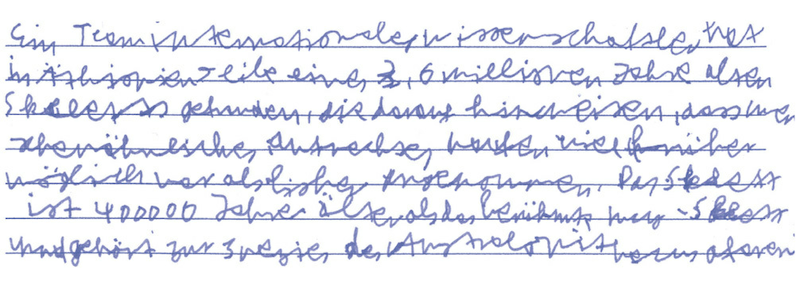 Ein Team internationaler wissenschaftler hat
in Äthiopien Teile eines 3,6 millionen Jahre alten
Skeletts gefunden, die darauf hinweisen, dass
menschenähnliches Aufrechtes laufen viel früher
möglich war als bisher angenommen. Das Skelett
ist 400000 Jahre älter als das berühmte Lucy-Skelett
und gehört zur Spezies des Australopithecus afarensis